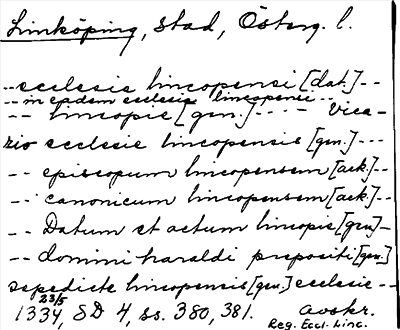 Linköping, stad, Österg. l.
-- ecclesie lincopensi [dat.] --
-- in eadem ecclesia lincopensi --
-- lincopie [gen.] -- -- Vica-
rio ecclesie lincopensis [gen.] --
-- episcopum lincopensem [ack.] --
-- canonicum lincopensem [ack.] --
-- Datum et actum lincopie [gen] --
-- domini haraldi prepositi [gen]
sepedicte lincopensis [gen.] ecclesie --
1334 23/5, SD 4, ss. 380, 381. avskr.
Reg. Eccl. Linc.